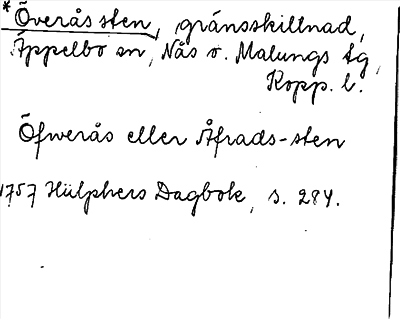 *Överås sten, gränsskillnad,
Äppelbo sn, Nås o. Malungs tg,
Kopp. l.
Öfwerås eller Åfrads-sten
1757 Hülphers Dagbok, s. 284.